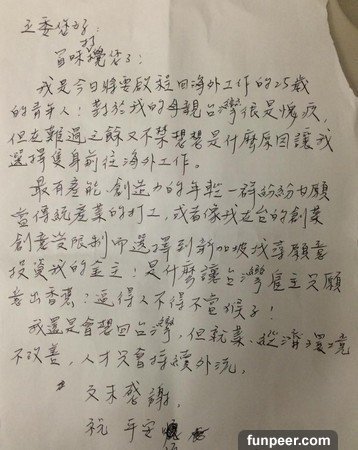 主委您好:
冒昧打攪您了:
我是今日將要啟程回海外工作的25歲
的青年人!對於我的母親台灣很是愧疚,
但在難過之餘又不禁想想是什麼原因讓我
選擇隻身前往海外工作。
最有產能、創造力的年輕一群紛紛甘願
當傳統產業的打工,或者像我在台的創業
創意受限制而選擇到新加坡找尋願意
投資我的金主!是什麼讓台灣雇主只願
意出香蕉:逼得人不得不當猴子!
我還是會想回台灣,但就業、經濟環境
不改善,人才只會持續外流。
文末感謝,
祝 平安
funpeer.com